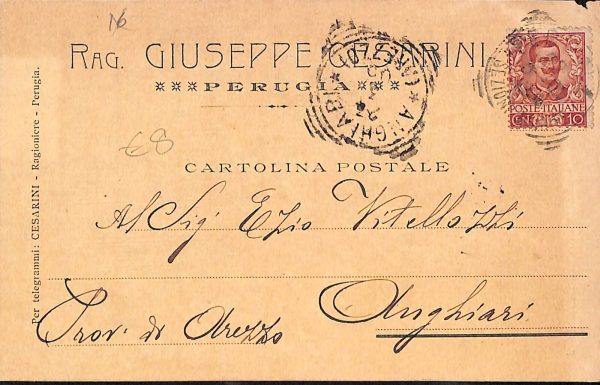 16
RAG. GIUSEPPE CESARINI
PERUGIA
ANGHIARI (AREZZO)
POSTE ITALIANE
CENT. 10
€8
CARTOLINA POSTALE
Al Sig Ezio Vitellozzi
Anghiari
Prov. di Arezzo
Per telegrammi: CESARINI - Ragioniere - Perugia.